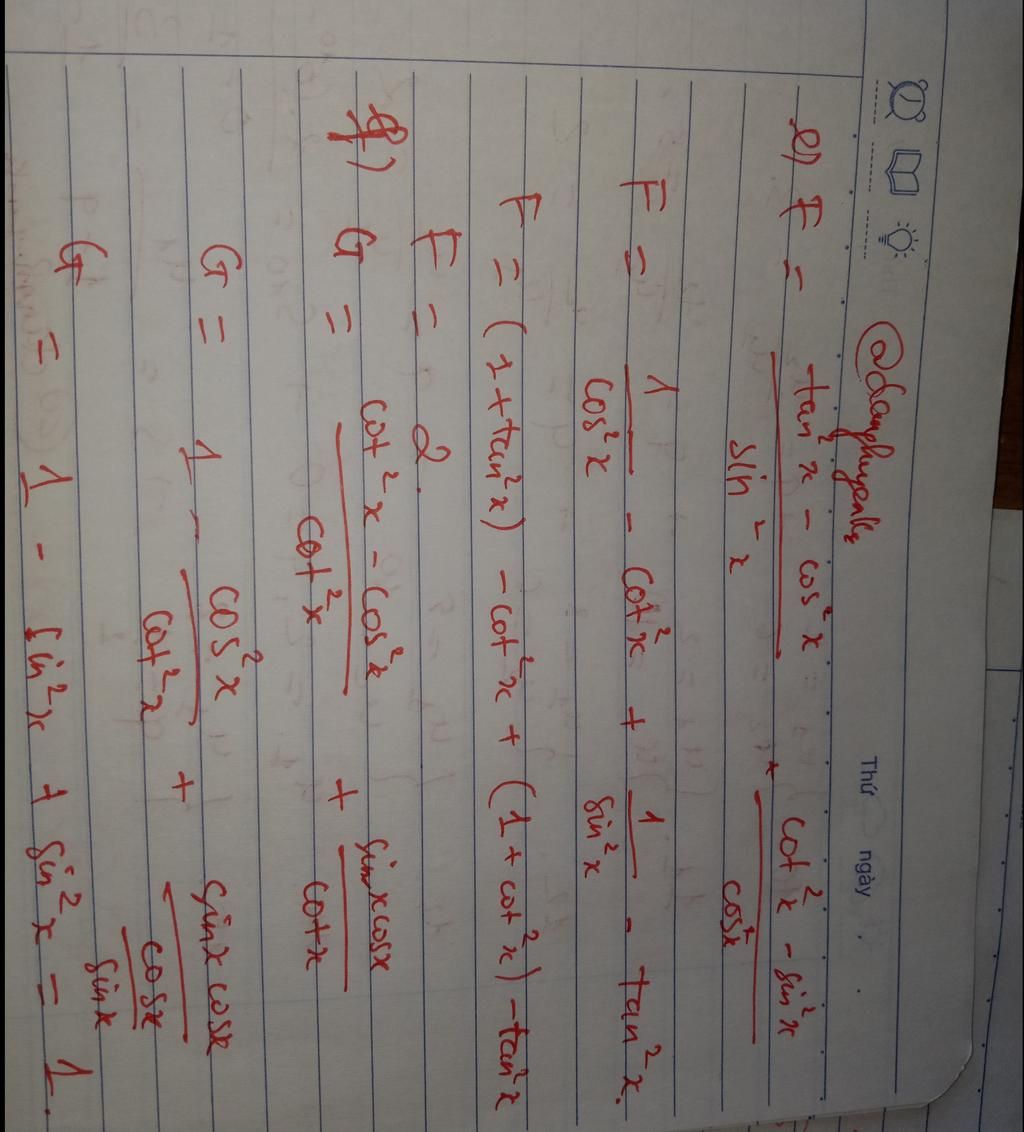 Thứ ngày
@danghuyenk2
e) F = (tan²x - cos²x)/(sin²x) + (cot²x - sin²x)/(cos²x)
F = 1/(cos²x) - cot²x + 1/(sin²x) - tan²x.
F = (1 + tan²x) - cot²x + (1 + cot²x) - tan²x
F = 2.
f) G = (cot²x - cos²x)/(cot²x) + (sinx cosx)/(cotx)
G = 1 - (cos²x)/(cot²x) + (sinx cosx)/(cosx/sinx)
G = 1 - sin²x + sin²x = 1.